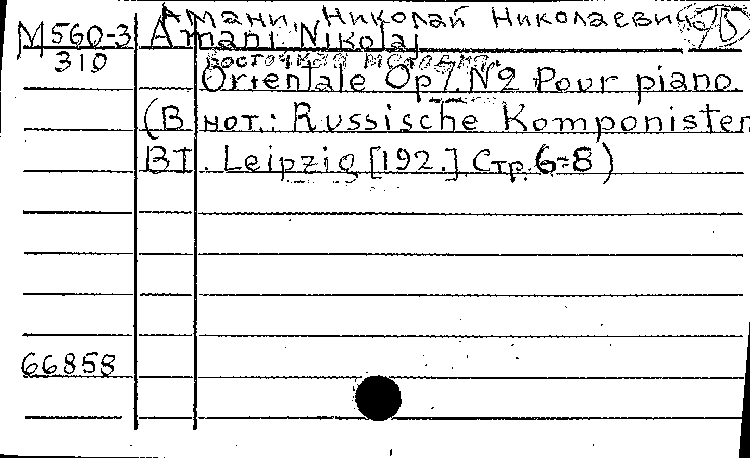 Амани, Николай Николаевич 75
М560-3 Amani, Nikolaj
310 Восточная мелодия.
Orientale Op 7. №2 Pour piano.
(В нот.: Russische Komponisten
BI. Leipzig [192.] Стр. 6-8)
66858